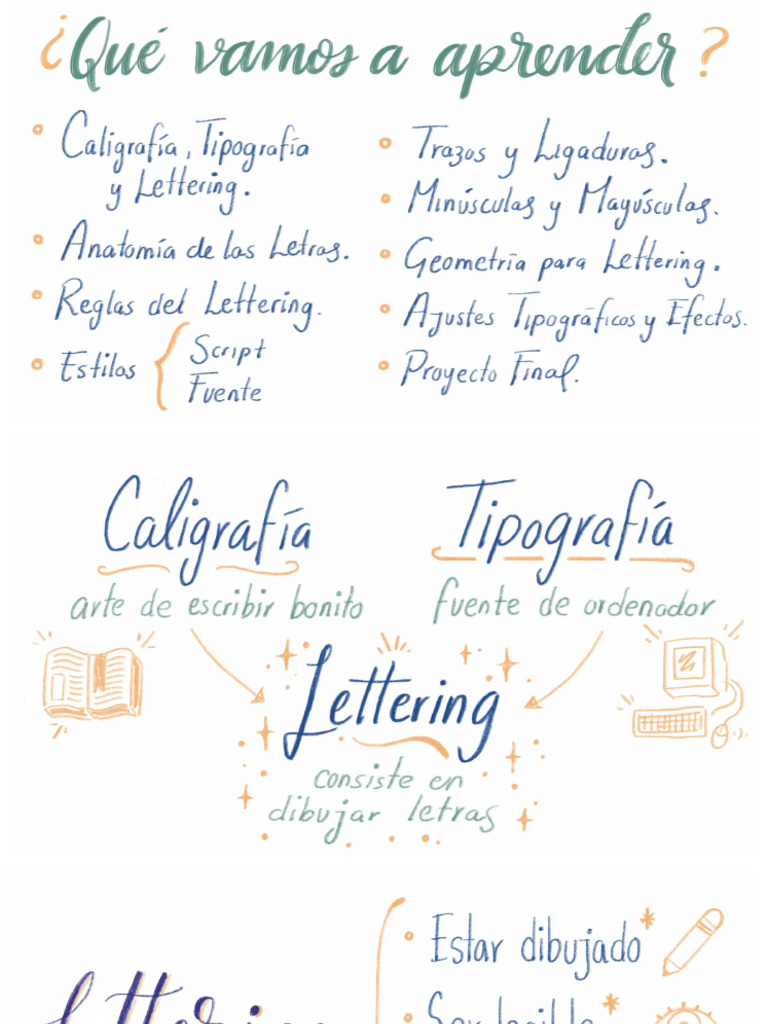 ¿Qué vamos a aprender?
Caligrafía, Tipografía
y Lettering.
Anatomía de las Letras.
Reglas del Lettering.
Estilos { Script
Fuente
Trazos y Ligaduras.
Minúsculas y Mayúsculas.
Geometría para Lettering.
Ajustes Tipográficos y Efectos.
Proyecto Final.
Caligrafía
arte de escribir bonito
Tipografía
fuente de ordenador
Lettering
consiste en
dibujar letras
Lettering
Estar dibujado*
Ser legible*